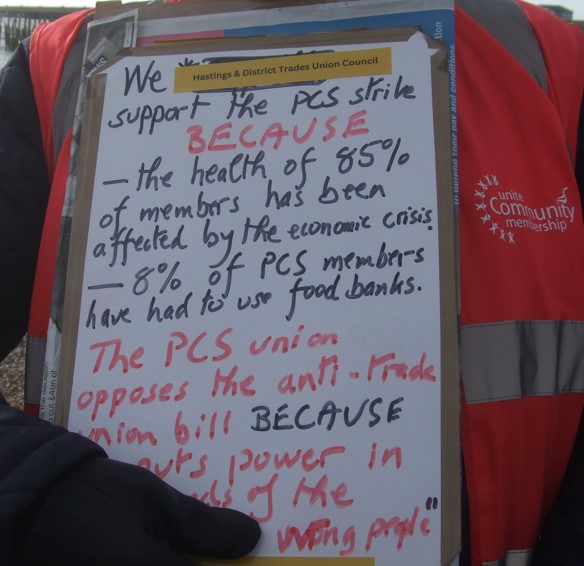 We
Hastings & District Trades Union Council
support the PCS strike
BECAUSE
– the health of 85%
of members has been
affected by the economic crisis.
– 8% of PCS members
have had to use food banks.
The PCS union
opposes the anti-trade
union bill BECAUSE
puts power in
of the
wrong people"
unite
Community
membership